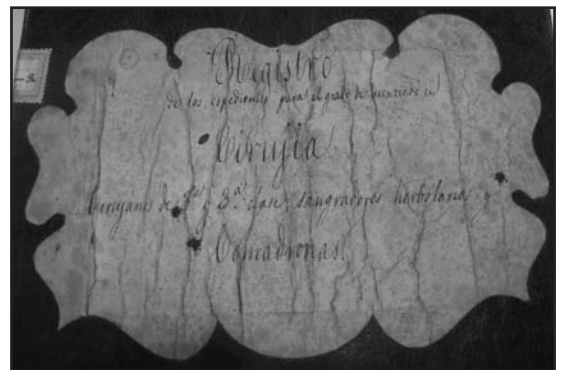 Registro
de los espedientes para el grado de
Cirujia
cirujanos de 2ª y 3ª clase, sangradores herbolarios y
Comadronas.